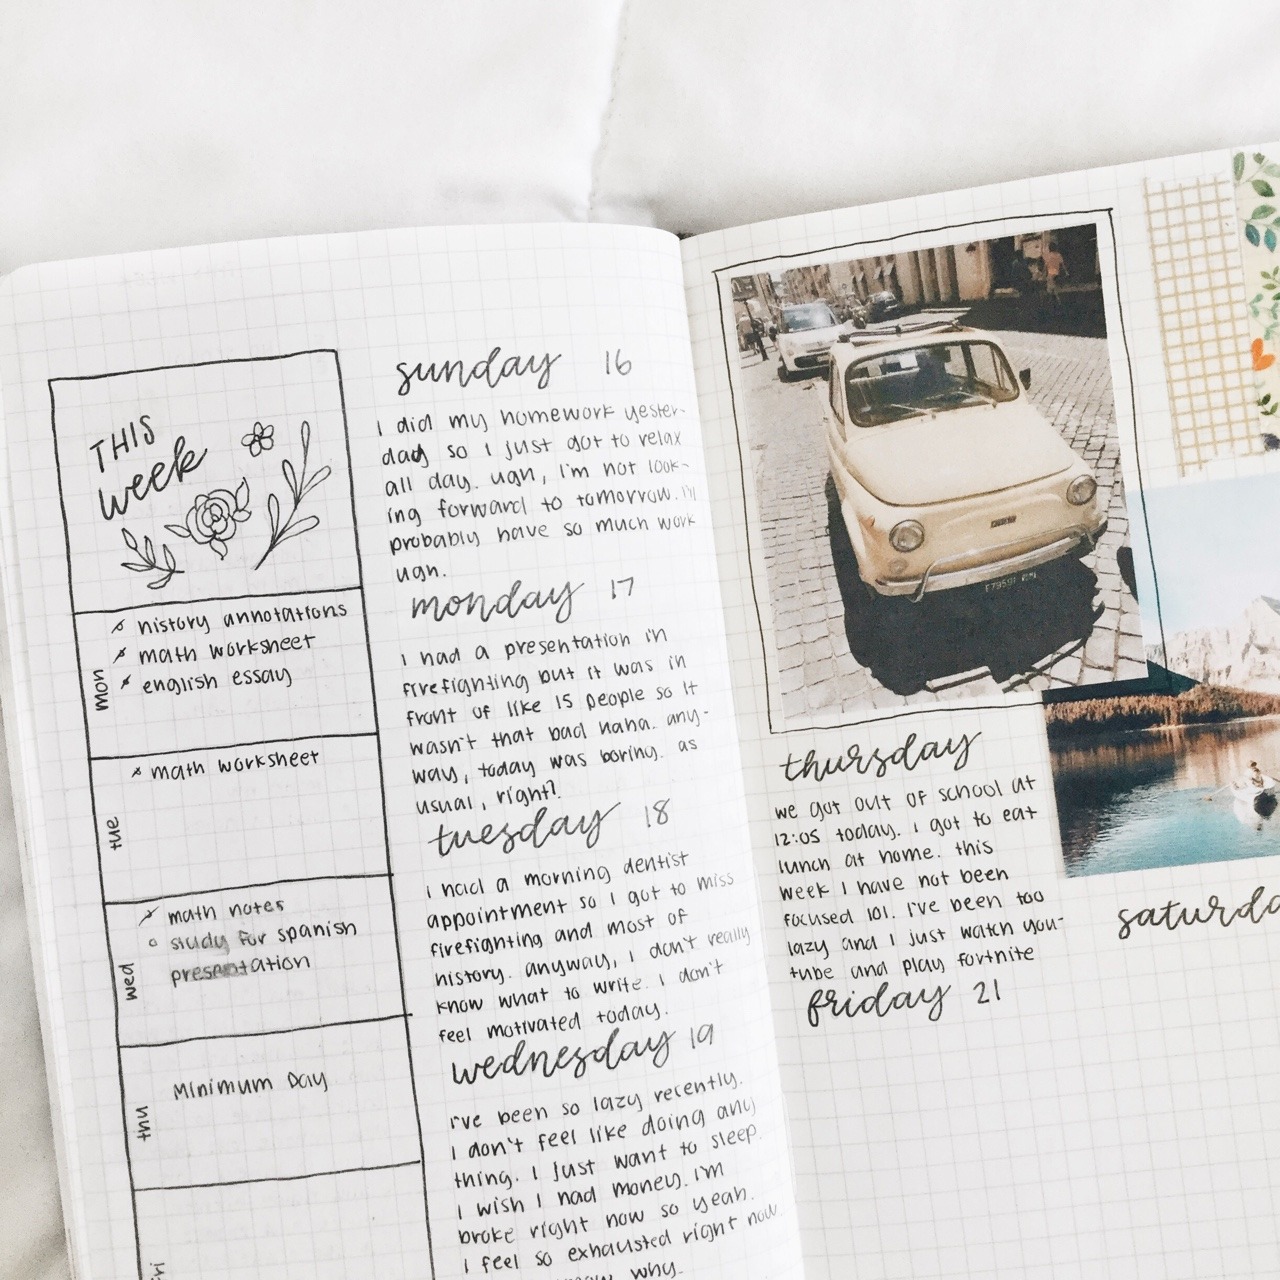 THIS
week
mon
x history annotations
x math worksheet
x english essay
tue
x math worksheet
wed
x math notes
o study for spanish
presentation
thu
Minimum Day
fri
sunday 16
I did my homework yester-
day so I just got to relax
all day. ugh, I'm not look-
ing forward to tomorrow. I'll
probably have so much work
ugh.
monday 17
I had a presentation in
firefighting but it was in
front of like 15 people so it
wasn't that bad haha. any-
way, today was boring. as
usual, right?
tuesday 18
I had a morning dentist
appointment so I got to miss
firefighting and most of
history. anyway, I don't really
know what to write. I don't
feel motivated today.
wednesday 19
I've been so lazy recently.
I don't feel like doing any
thing. I just want to sleep.
I wish I had money. I'm
broke right now so yeah.
I feel so exhausted right now
why.
thursday
we got out of school at
12:05 today. I got to eat
lunch at home. this
week I have not been
focused lol. I've been too
lazy and I just watch you-
tube and play fortnite
friday 21
saturda